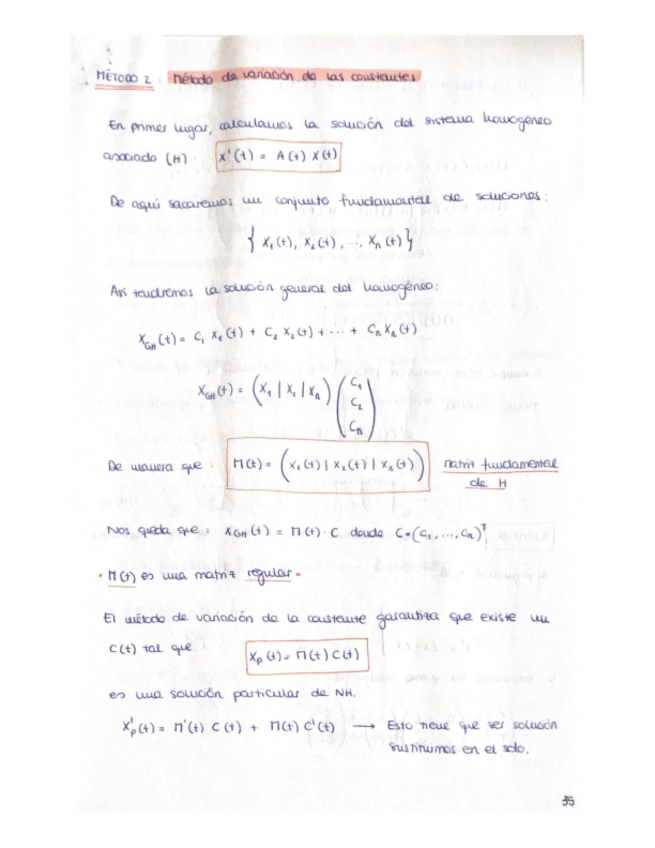 MÉTODO 2: Método de variación de las constantes
En primer lugar, calculamos la solución del sistema homogéneo
asociado (H): X'(t) = A(t) X(t)
De aquí sacaremos un conjunto fundamental de soluciones:
{ X₁(t), X₂(t), ..., Xₙ(t) }
Así tendremos la solución general del homogéneo:
X_GH(t) = C₁ X₁(t) + C₂ X₂(t) + ... + Cₙ Xₙ(t)
X_GH(t) = (X₁ | X₂ | Xₙ) (C₁ C₂ Cₙ)
De manera que: M(t) = (X₁(t) | X₂(t) | Xₙ(t)) matriz fundamental
de H
Nos queda que: X_GH(t) = M(t) · C donde C = (C₁, ..., Cₙ)ᵀ
· M(t) es una matriz regular ·
El método de variación de la constante garantiza que existe un
C(t) tal que: Xₚ(t) = M(t) C(t)
es una solución particular de NH.
Xₚ'(t) = M'(t) C(t) + M(t) C'(t) → Esto tiene que ser solución
sustituimos en el sdo.
35